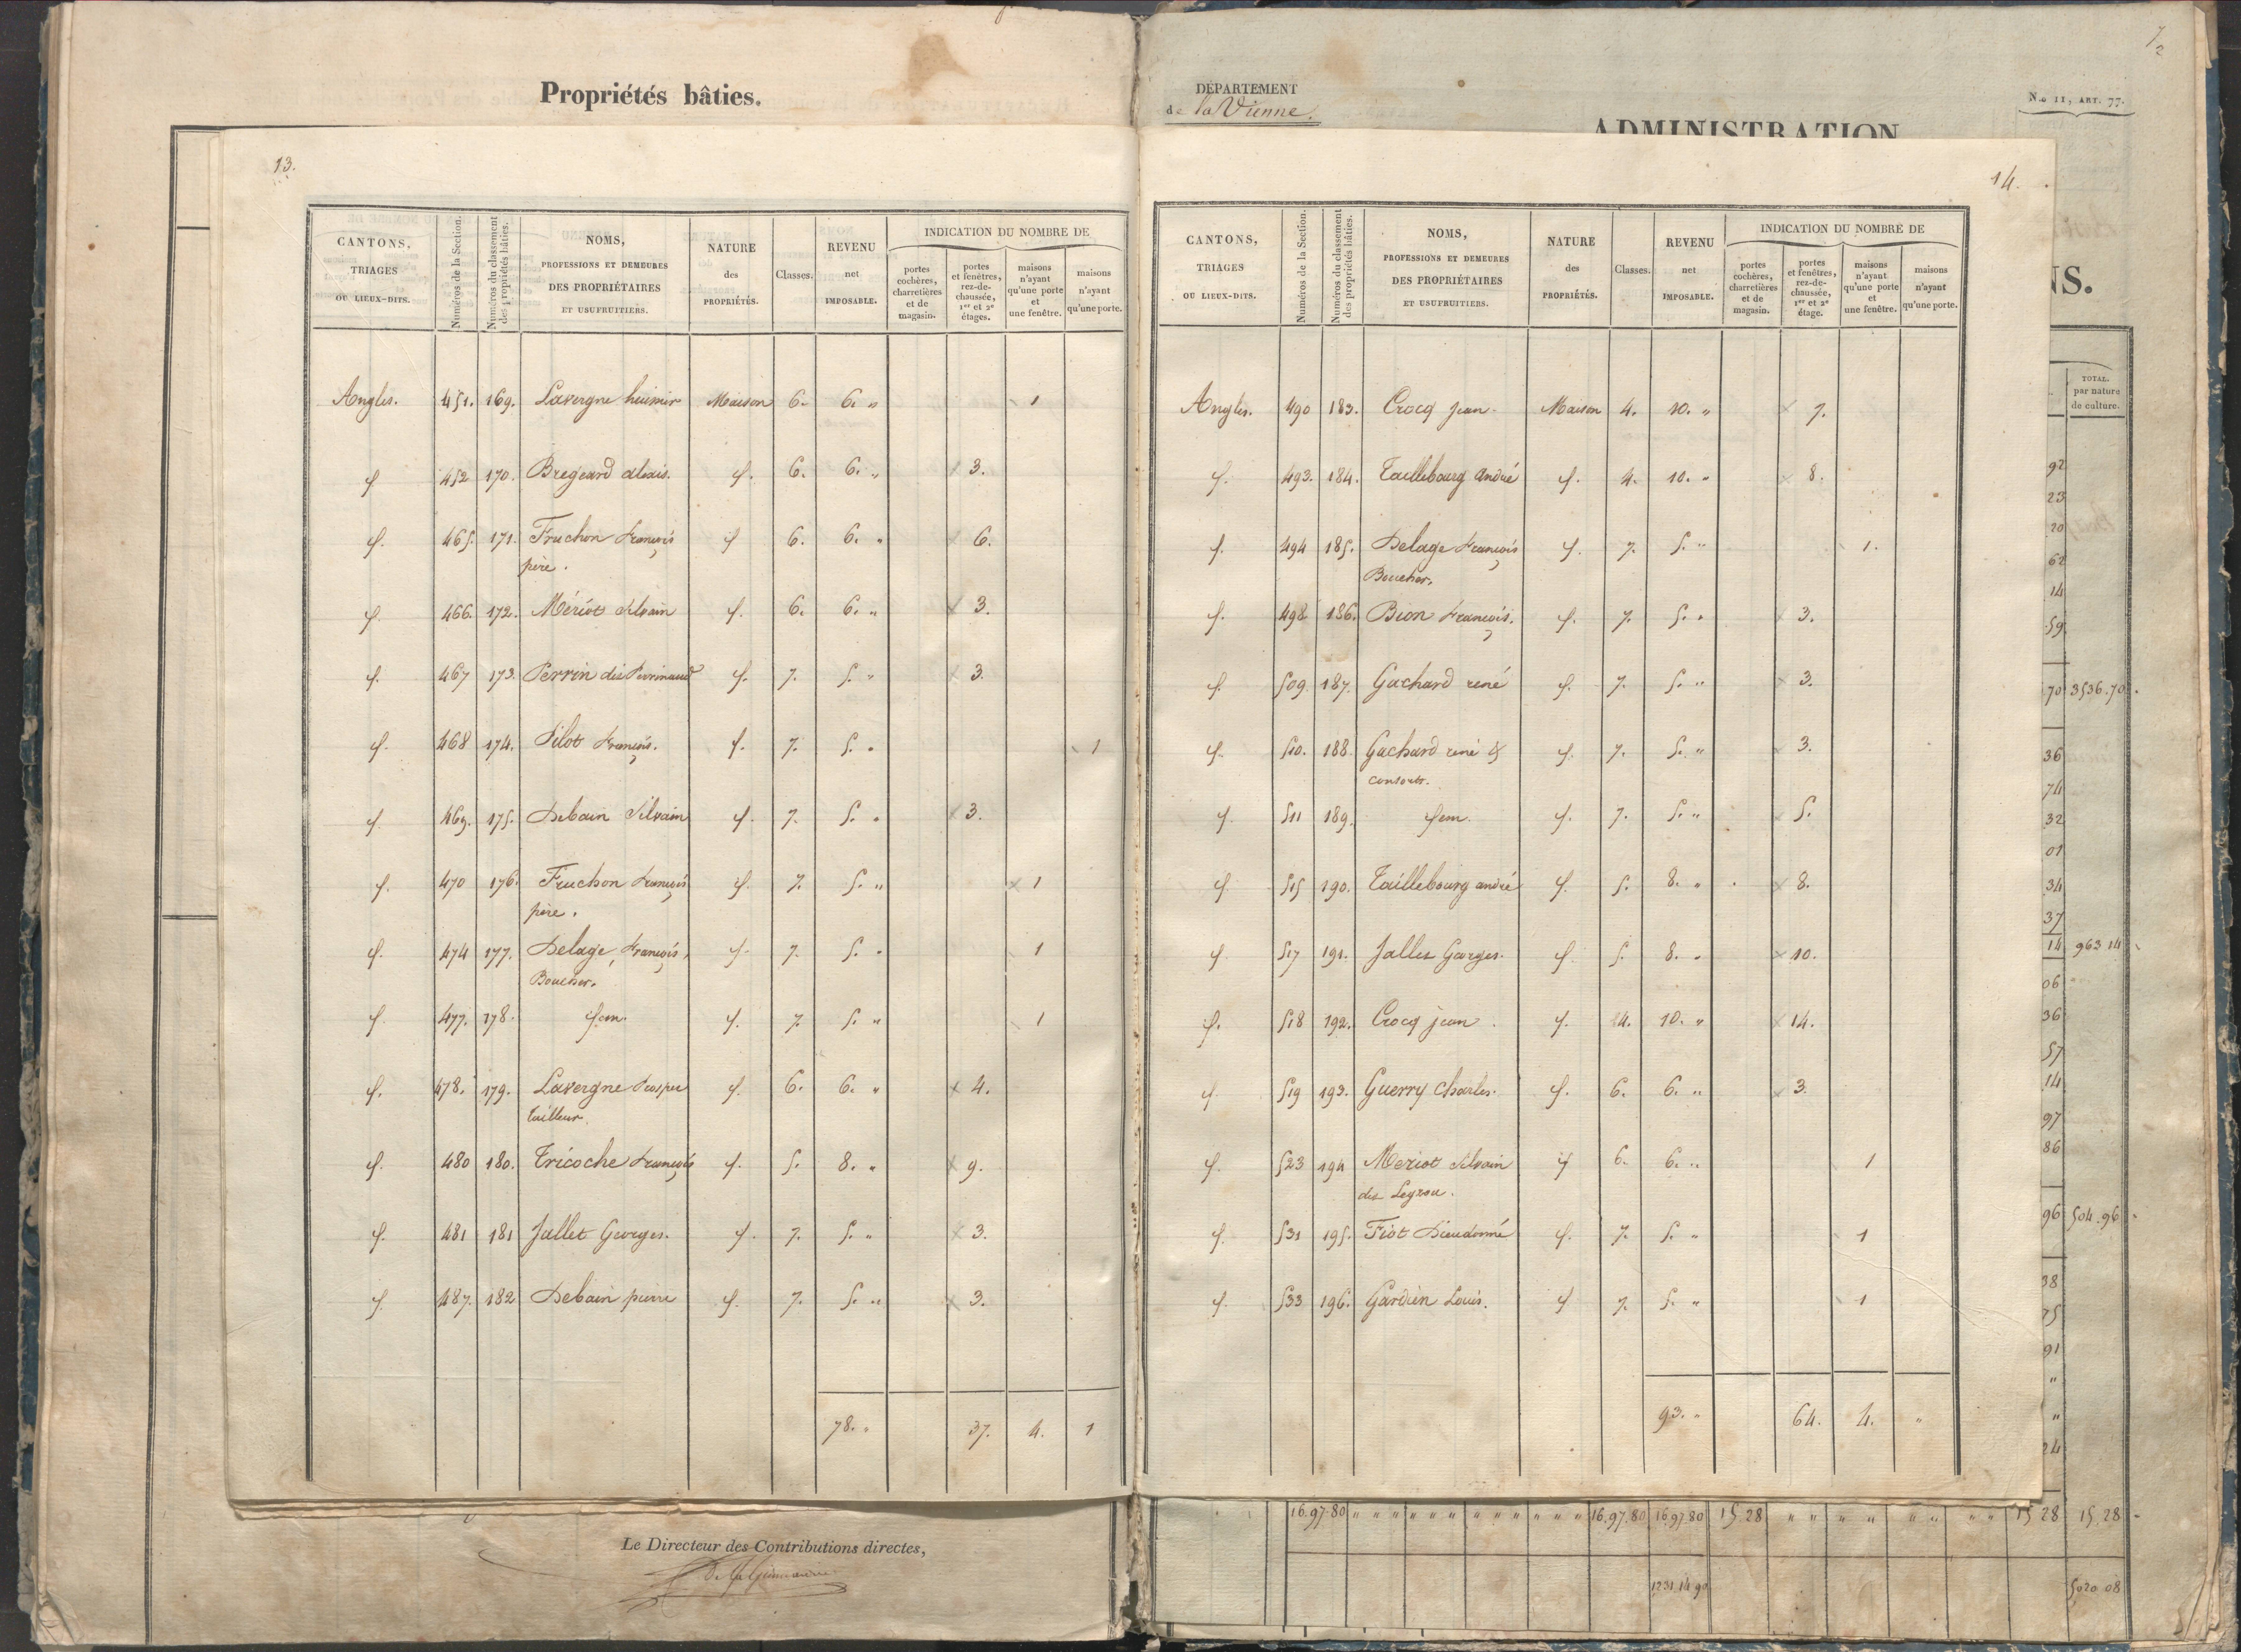 Propriétés bâties.
13.
CANTONS, TRIAGES OU LIEUX-DITS. | Numéros de la Section. | Numéros du classement des propriétés bâties. | NOMS, PROFESSIONS ET DEMEURES DES PROPRIÉTAIRES ET USUFRUITIERS. | NATURE des PROPRIÉTÉS. | Classes. | REVENU net IMPOSABLE. | INDICATION DU NOMBRE DE
portes cochères, charretières et de magasin. | portes et fenêtres, rez-de-chaussée, 1er et 2e étages. | maisons n'ayant qu'une porte et une fenêtre. | maisons n'ayant qu'une porte.
Angles. 451. 169. Lavergne Maison 6. 6. " 1
if 452 170. Bregeard alexis. if. 6. 6. " 3.
if. 465. 171. Fruchon François if 6. 6. " 6.
père.
if. 466. 172. Mériot Silvain if. 6. 6. " 3.
if. 467 173. Perrin dit Perrinaud if. 7. 5. " 3.
if. 468 174. Pilot François. if. 7. 5. " 1
if. 469. 175. Debain Silvain if. 7. 5. " 3.
if. 470 176. Fruchon François if. 7. 5. " 1
père.
if. 474 177. Delage, François, if. 7. 5. " 1
Boucher.
if. 477. 178. ifem. if. 7. 5. " 1
if. 478. 179. Lavergne Prosper if. 6. 6. " 4.
tailleur.
if. 480 180. Tricoche François if. 5. 8. " 9.
if. 481 181 Jallet Georges. if. 7. 5. " 3.
if. 487. 182 Debain pierre if. 7. 5. " 3.
78. " 37. 4. 1
Le Directeur des Contributions directes,
DÉPARTEMENT
de la Vienne.
N.o 11, ART. 77.
7
2
ADMINISTRATION
NS.
14.
CANTONS, TRIAGES OU LIEUX-DITS. | Numéros de la Section. | Numéros du classement des propriétés bâties. | NOMS, PROFESSIONS ET DEMEURES DES PROPRIÉTAIRES ET USUFRUITIERS. | NATURE des PROPRIÉTÉS. | Classes. | REVENU net IMPOSABLE. | INDICATION DU NOMBRE DE
portes cochères, charretières et de magasin. | portes et fenêtres, rez-de-chaussée, 1er et 2e étage. | maisons n'ayant qu'une porte et une fenêtre. | maisons n'ayant qu'une porte.
Angles. 490 183. Crocq Jean. Maison 4. 10. " 7.
if. 493. 184. Taillebourg André if. 4. 10. " 8.
if. 494 185. Delage François if. 7. 5. " 1.
Boucher.
if. 498 186. Bion François. if. 7. 5. " 3.
if. 509. 187. Gachard rené if. 7. 5. " 3.
if. 510. 188. Gachard rené & if. 7. 5. " 3.
consorts.
if. 511 189. ifem. if. 7. 5. " 5.
if. 515 190. Taillebourg andré if. 5. 8. " 8.
if. 517 191. Jallet Georges. if. 5. 8. " 10.
if. 518 192. Crocq jean. if. 4. 10. " 14.
if. 519 193. Guerry Charles. if. 6. 6. " 3.
if. 523 194 Meriot Silvain if 6. 6. " 1
if. 531 195. Fiot Dieudonné if. 7. 5. " 1
if. 533 196. Gardien Louis. if 7. 5. " 1
93. " 64. 4. "
TOTAL.
par nature
de culture.
92
23
20
62
14
59
70 3536.70
36
74
32
01
34
37
14 963 14
06
36
57
14
97
86
96 504.96
38
75
91
"
"
24
16.97.80 " " " " " " " " " " " " 16.97.80 16.97.80 15 28 " " " " " " " " 15 28 15.28
1231.14 90 5020 08